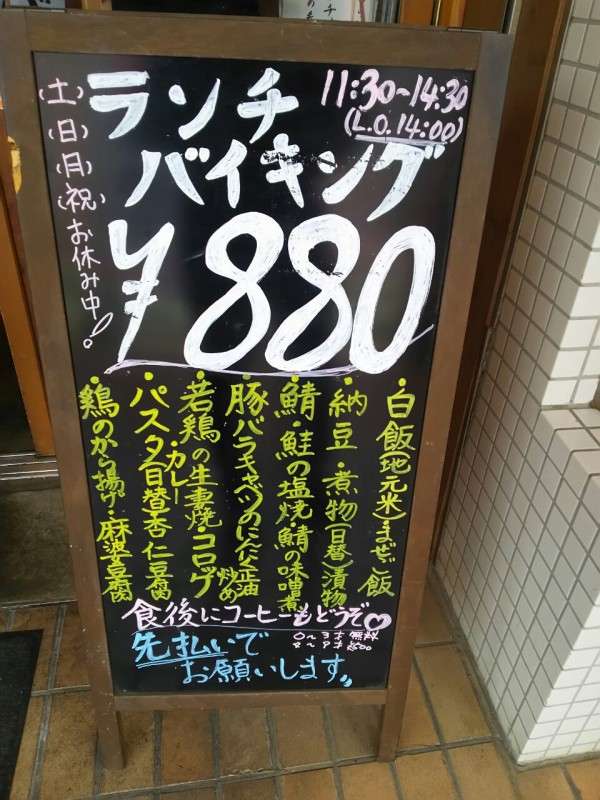 ランチ
バイキング
11:30~14:30
(L.O.14:00)
(土)(日)(月)(祝)お休み中!
¥880
・白飯(地元米)まぜご飯
・納豆・煮物(日替)漬物
・鯖・鮭の塩焼・鯖の味噌煮
・豚バラキャベツのにんにく正油炒め
・若鶏の生姜焼・コロッケ
・パスタ・カレー日替杏仁豆腐
・鶏のから揚げ・麻婆豆腐
食後にコーヒーもどうぞ♡
0~3才 無料
先払いで
お願いします。